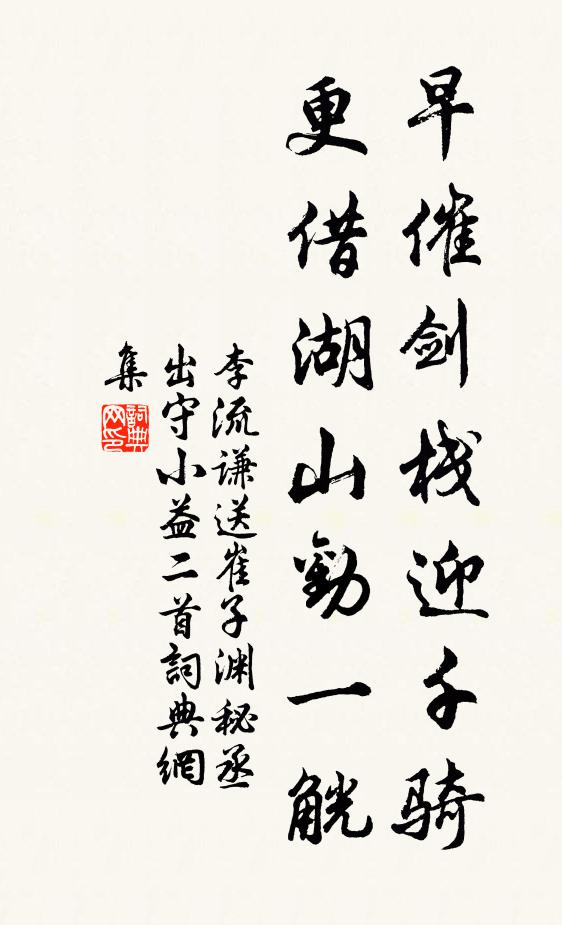 早催剑栈迎千骑
更借湖山勸一觥
李流谦送崔子渊秘丞
出守小益二首詞典網
集
詞典网印